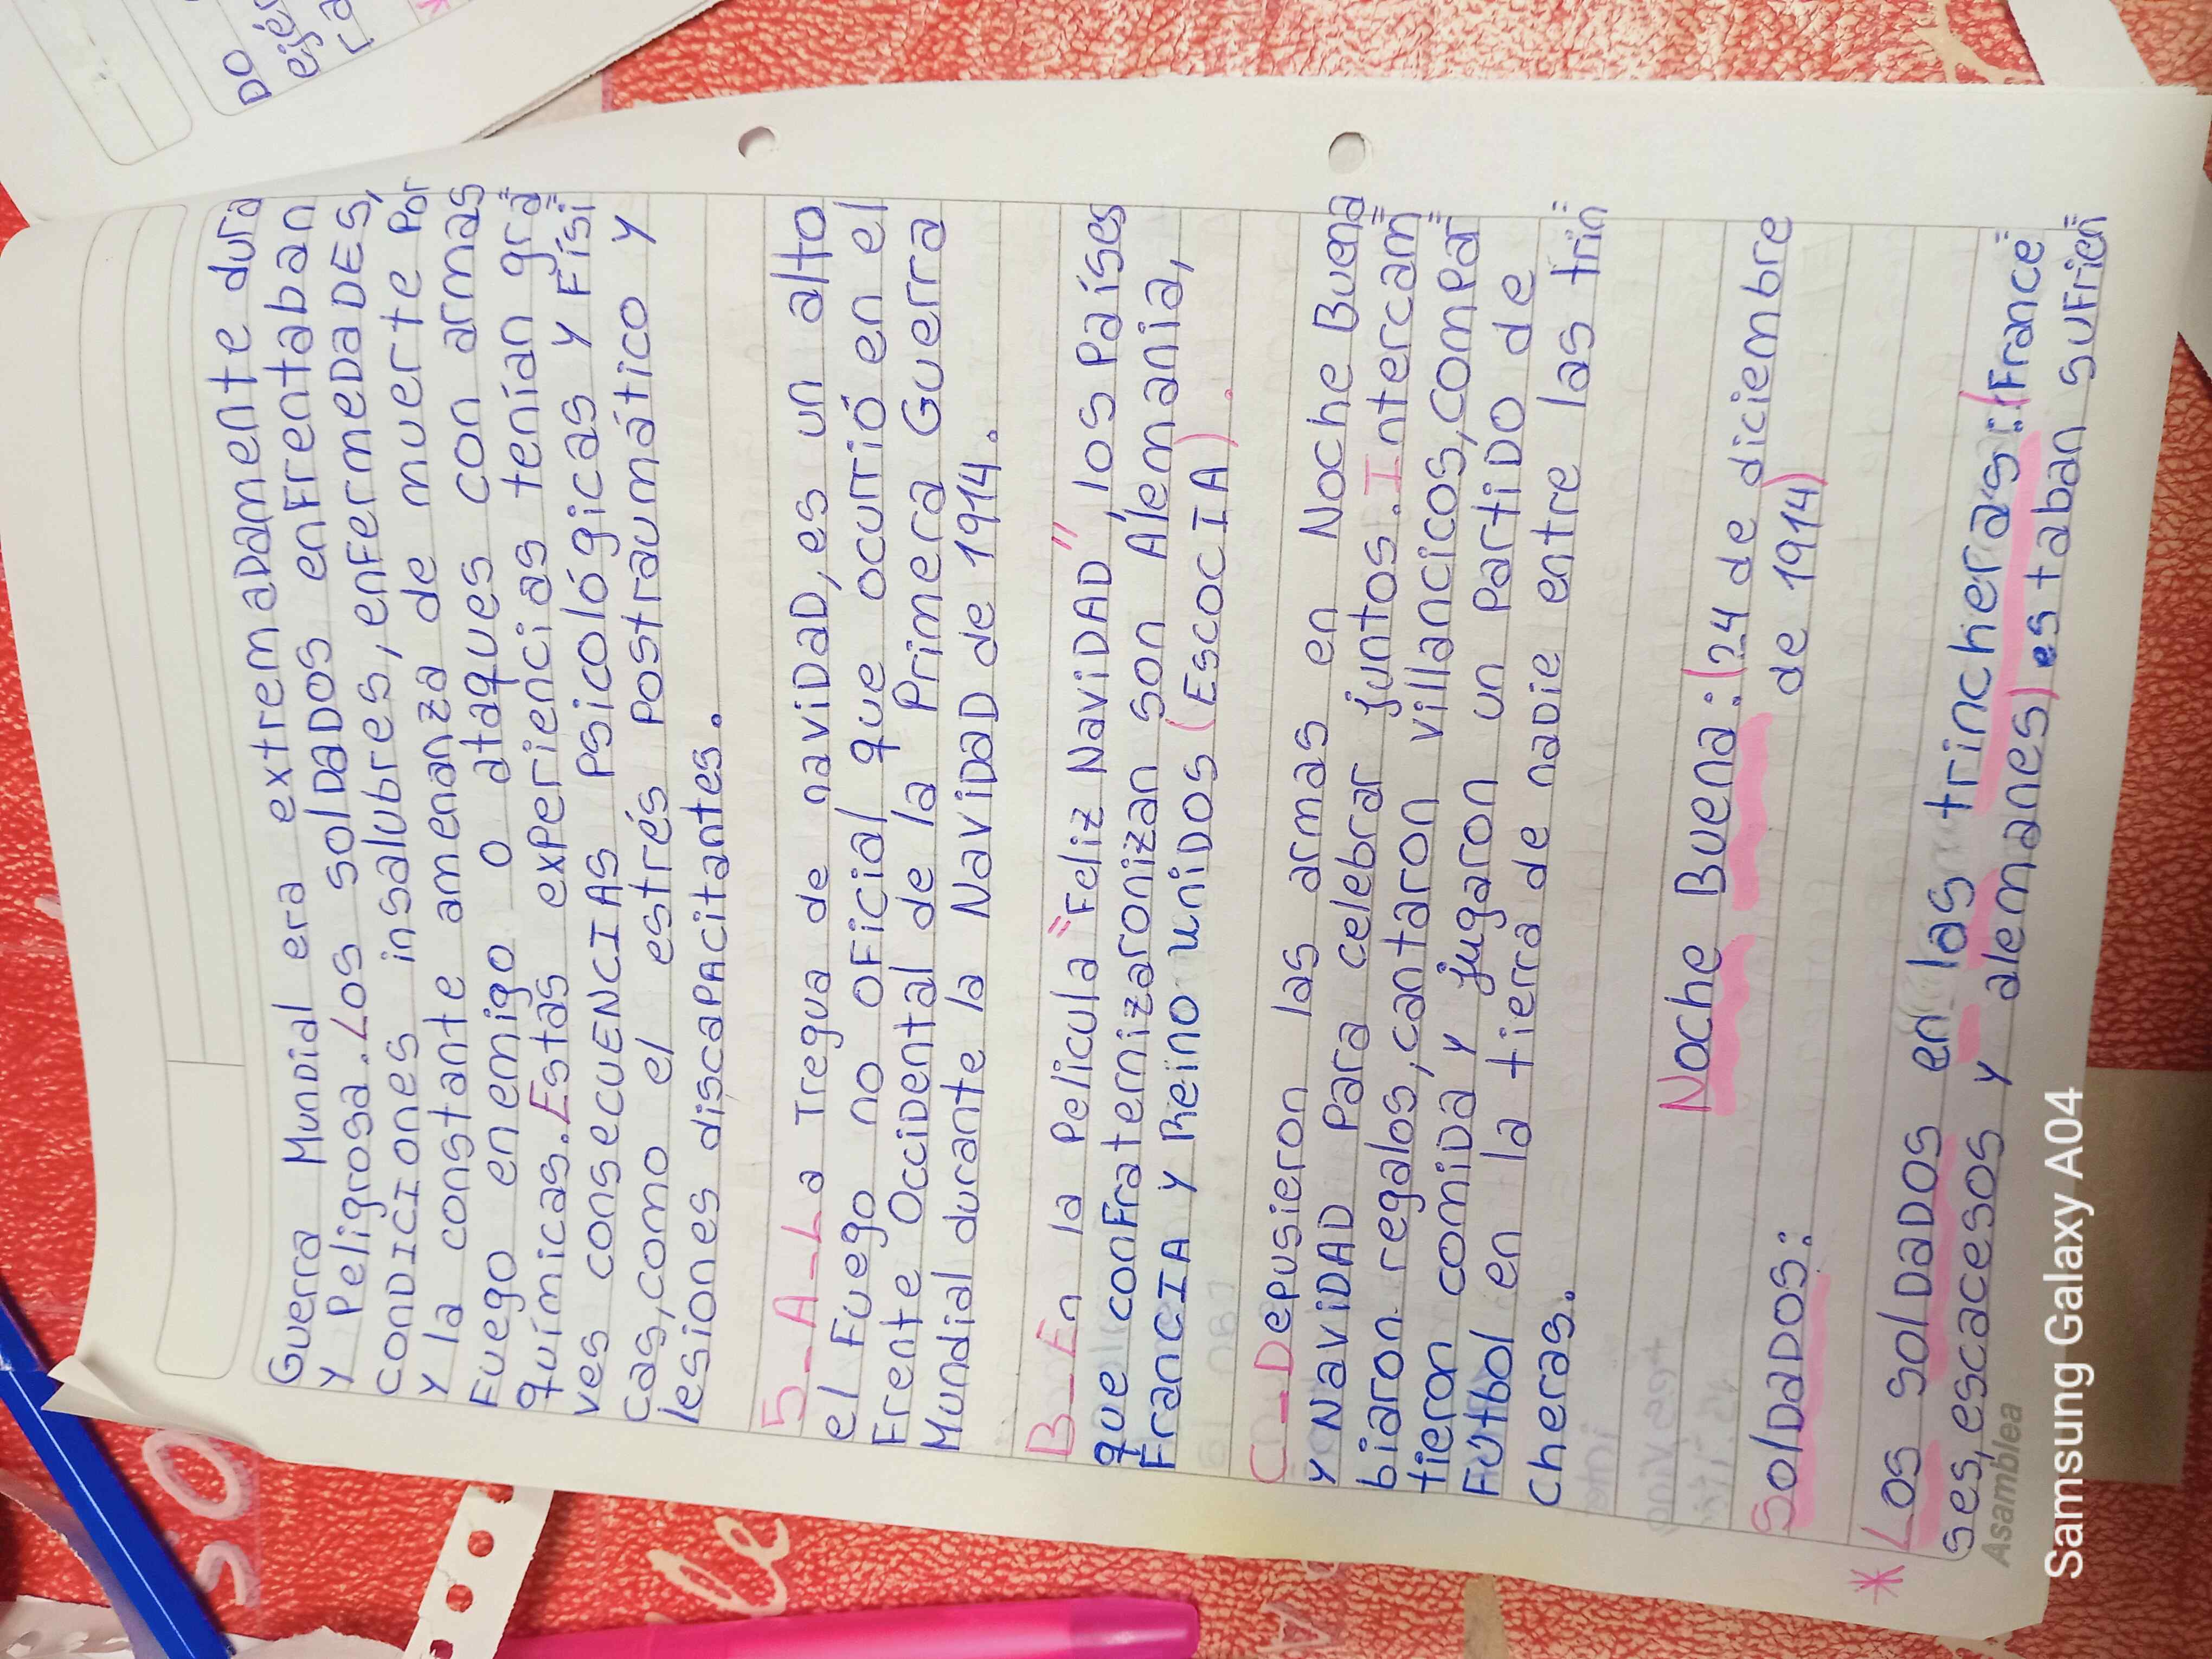 Guerra Mundial era extremadamente dura
y Peligrosa. Los soldados enfrentaban
condiciones insalubres, enfermedades,
y la constante amenanza de muerte por
fuego enemigo o ataques con armas
químicas. Estas experiencias tenían gra=
ves consecuencias psicológicas y físi=
cas, como el estrés postraumático y
lesiones discapacitantes.
5_A_La Tregua de navidad, es un alto
el fuego no oficial que ocurrió en el
Frente Occidental de la Primera Guerra
Mundial durante la Navidad de 1914.
B_En la Pelicula "Feliz Navidad", los países
que confraternizaronizan son Álemania,
Francia y Reino unidos (Escocia).
C_Depusieron las armas en Noche Buena
y Navidad para celebrar juntos. Intercam=
biaron regalos, cantaron villancicos, compar=
tieron comida y jugaron un partido de
Fútbol en la tierra de nadie entre las trin=
cheras.
Noche Buena: (24 de diciembre
de 1914)
Soldados:
* Los soldados en las trincheras: (France=
ses, escaceses y alemanes) estaban sufrien=
Asamblea
Samsung Galaxy A04
Do
ejér
ca
*